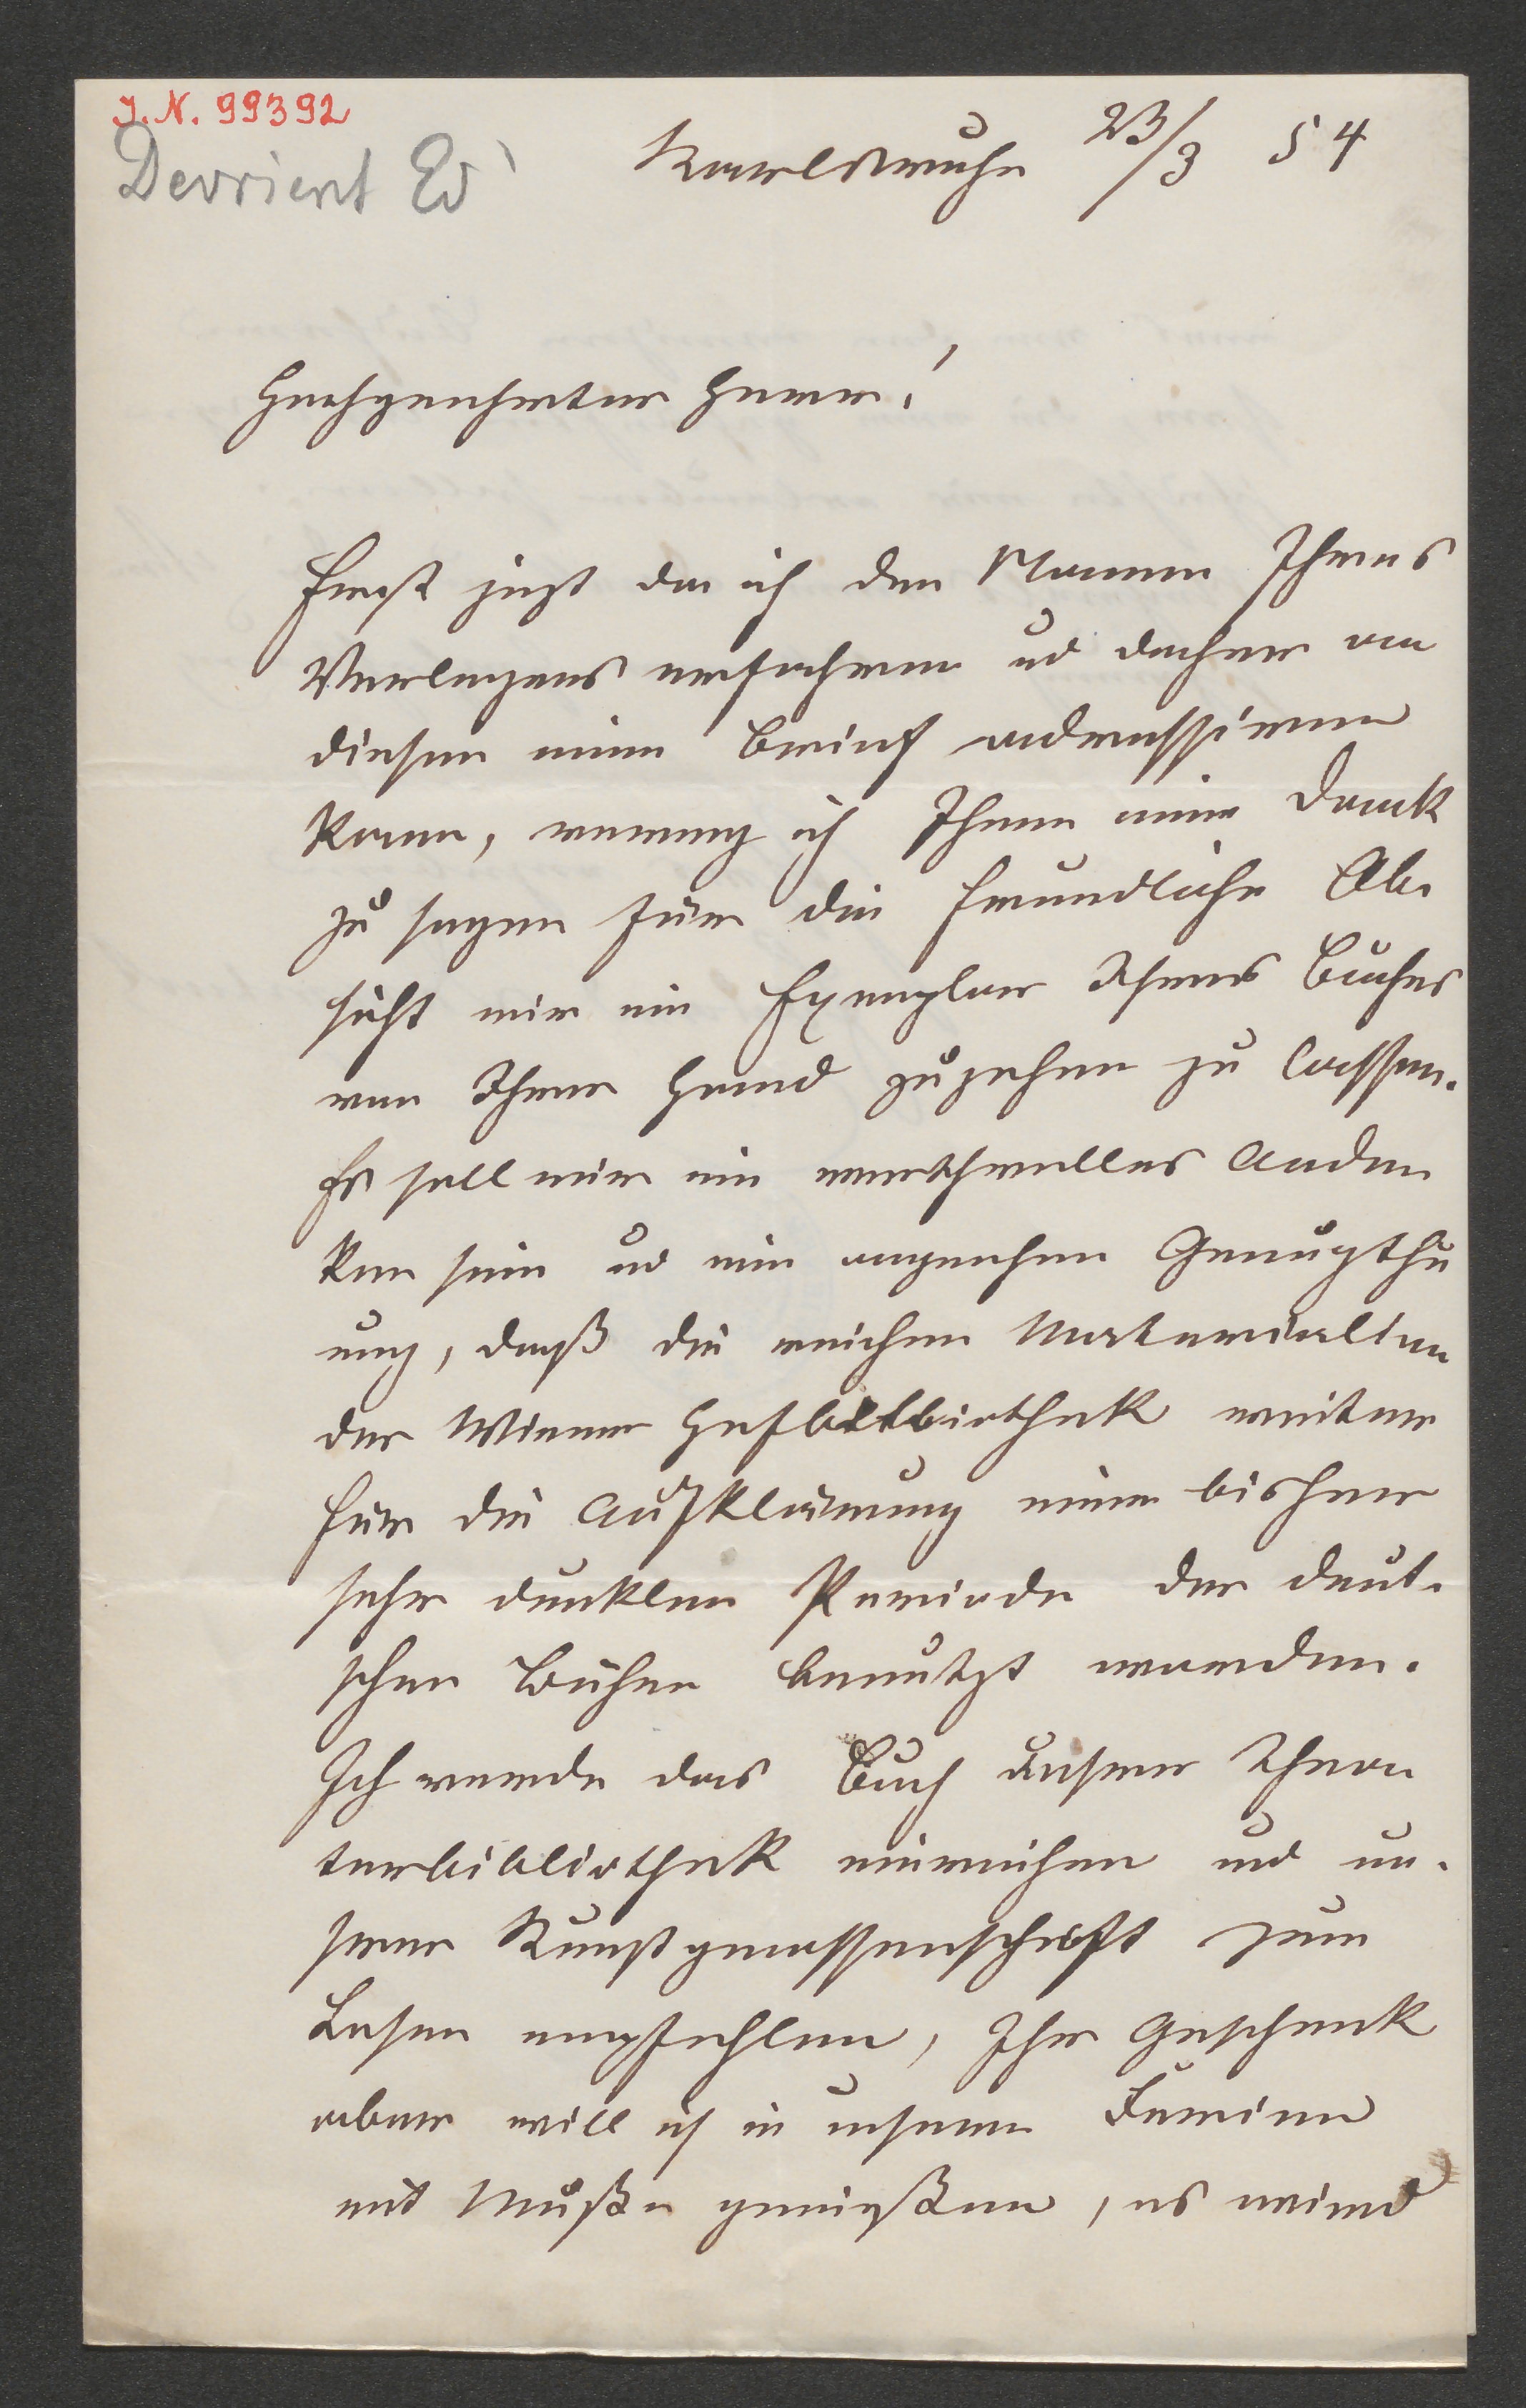 J. N. 99392
Devrient Ed
Karlsruhe 23/3 54
Hochgeehrter Herr!
Erst jezt da ich den Namen Ihres
Verlegers erfahren und daher an
diesen einen Brief adressiren
kann, vermag ich Ihnen meinen Dank
zu sagen für die freundliche Ab-
sicht mir ein Exemplar Ihres Buches
von Ihrer Hand zugehen zu lassen.
Es soll mir ein werthvolles Anden
ken sein und eine angenehme Genugthu
ung, daß die reichen Materialien
der Wiener Hofbibliothek weiter
für die Aufklärung einer bisher
sehr dunklen Periode der deut-
schen Bühne benutzt worden.
Ich werde das Buch unserer Thea
terbibliothek einreihen und un-
serer Kunstgenossenschaft zum
Lesen empfehlen, Ihr Geschenk
aber will ich in unseren Ferien
mit Muße genießen, es wird